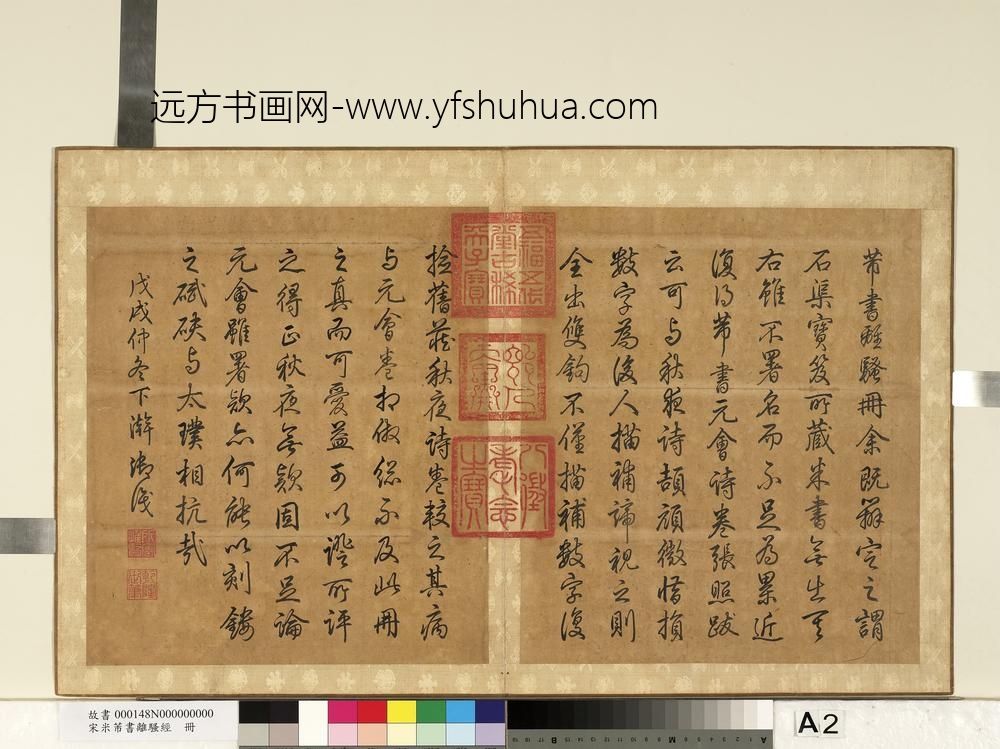 远方书画网-www.yfshuhua.com
芾書離騷冊余既辨定之謂
石渠寶笈所藏米書無出其
右雖不署名而不足為累近
復得芾書元會詩卷張照跋
云可与秋夜詩頡頏微惜損
數字為後人描補諦視之則
全出雙鉤不僅描補數字復
撿舊藏秋夜詩卷較之其病
与元會卷相倣總不及此冊
之真而可愛益可以證所評
之得正秋夜無款固不足論
元會雖署款亦何能以刻鏤
之碔砆与太璞相抗哉
戊戌仲冬下澣御識
五福五代堂古稀天子寶
八徵耄念之寶
故書 000148N000000000
宋米芾書離騷經 冊
A2